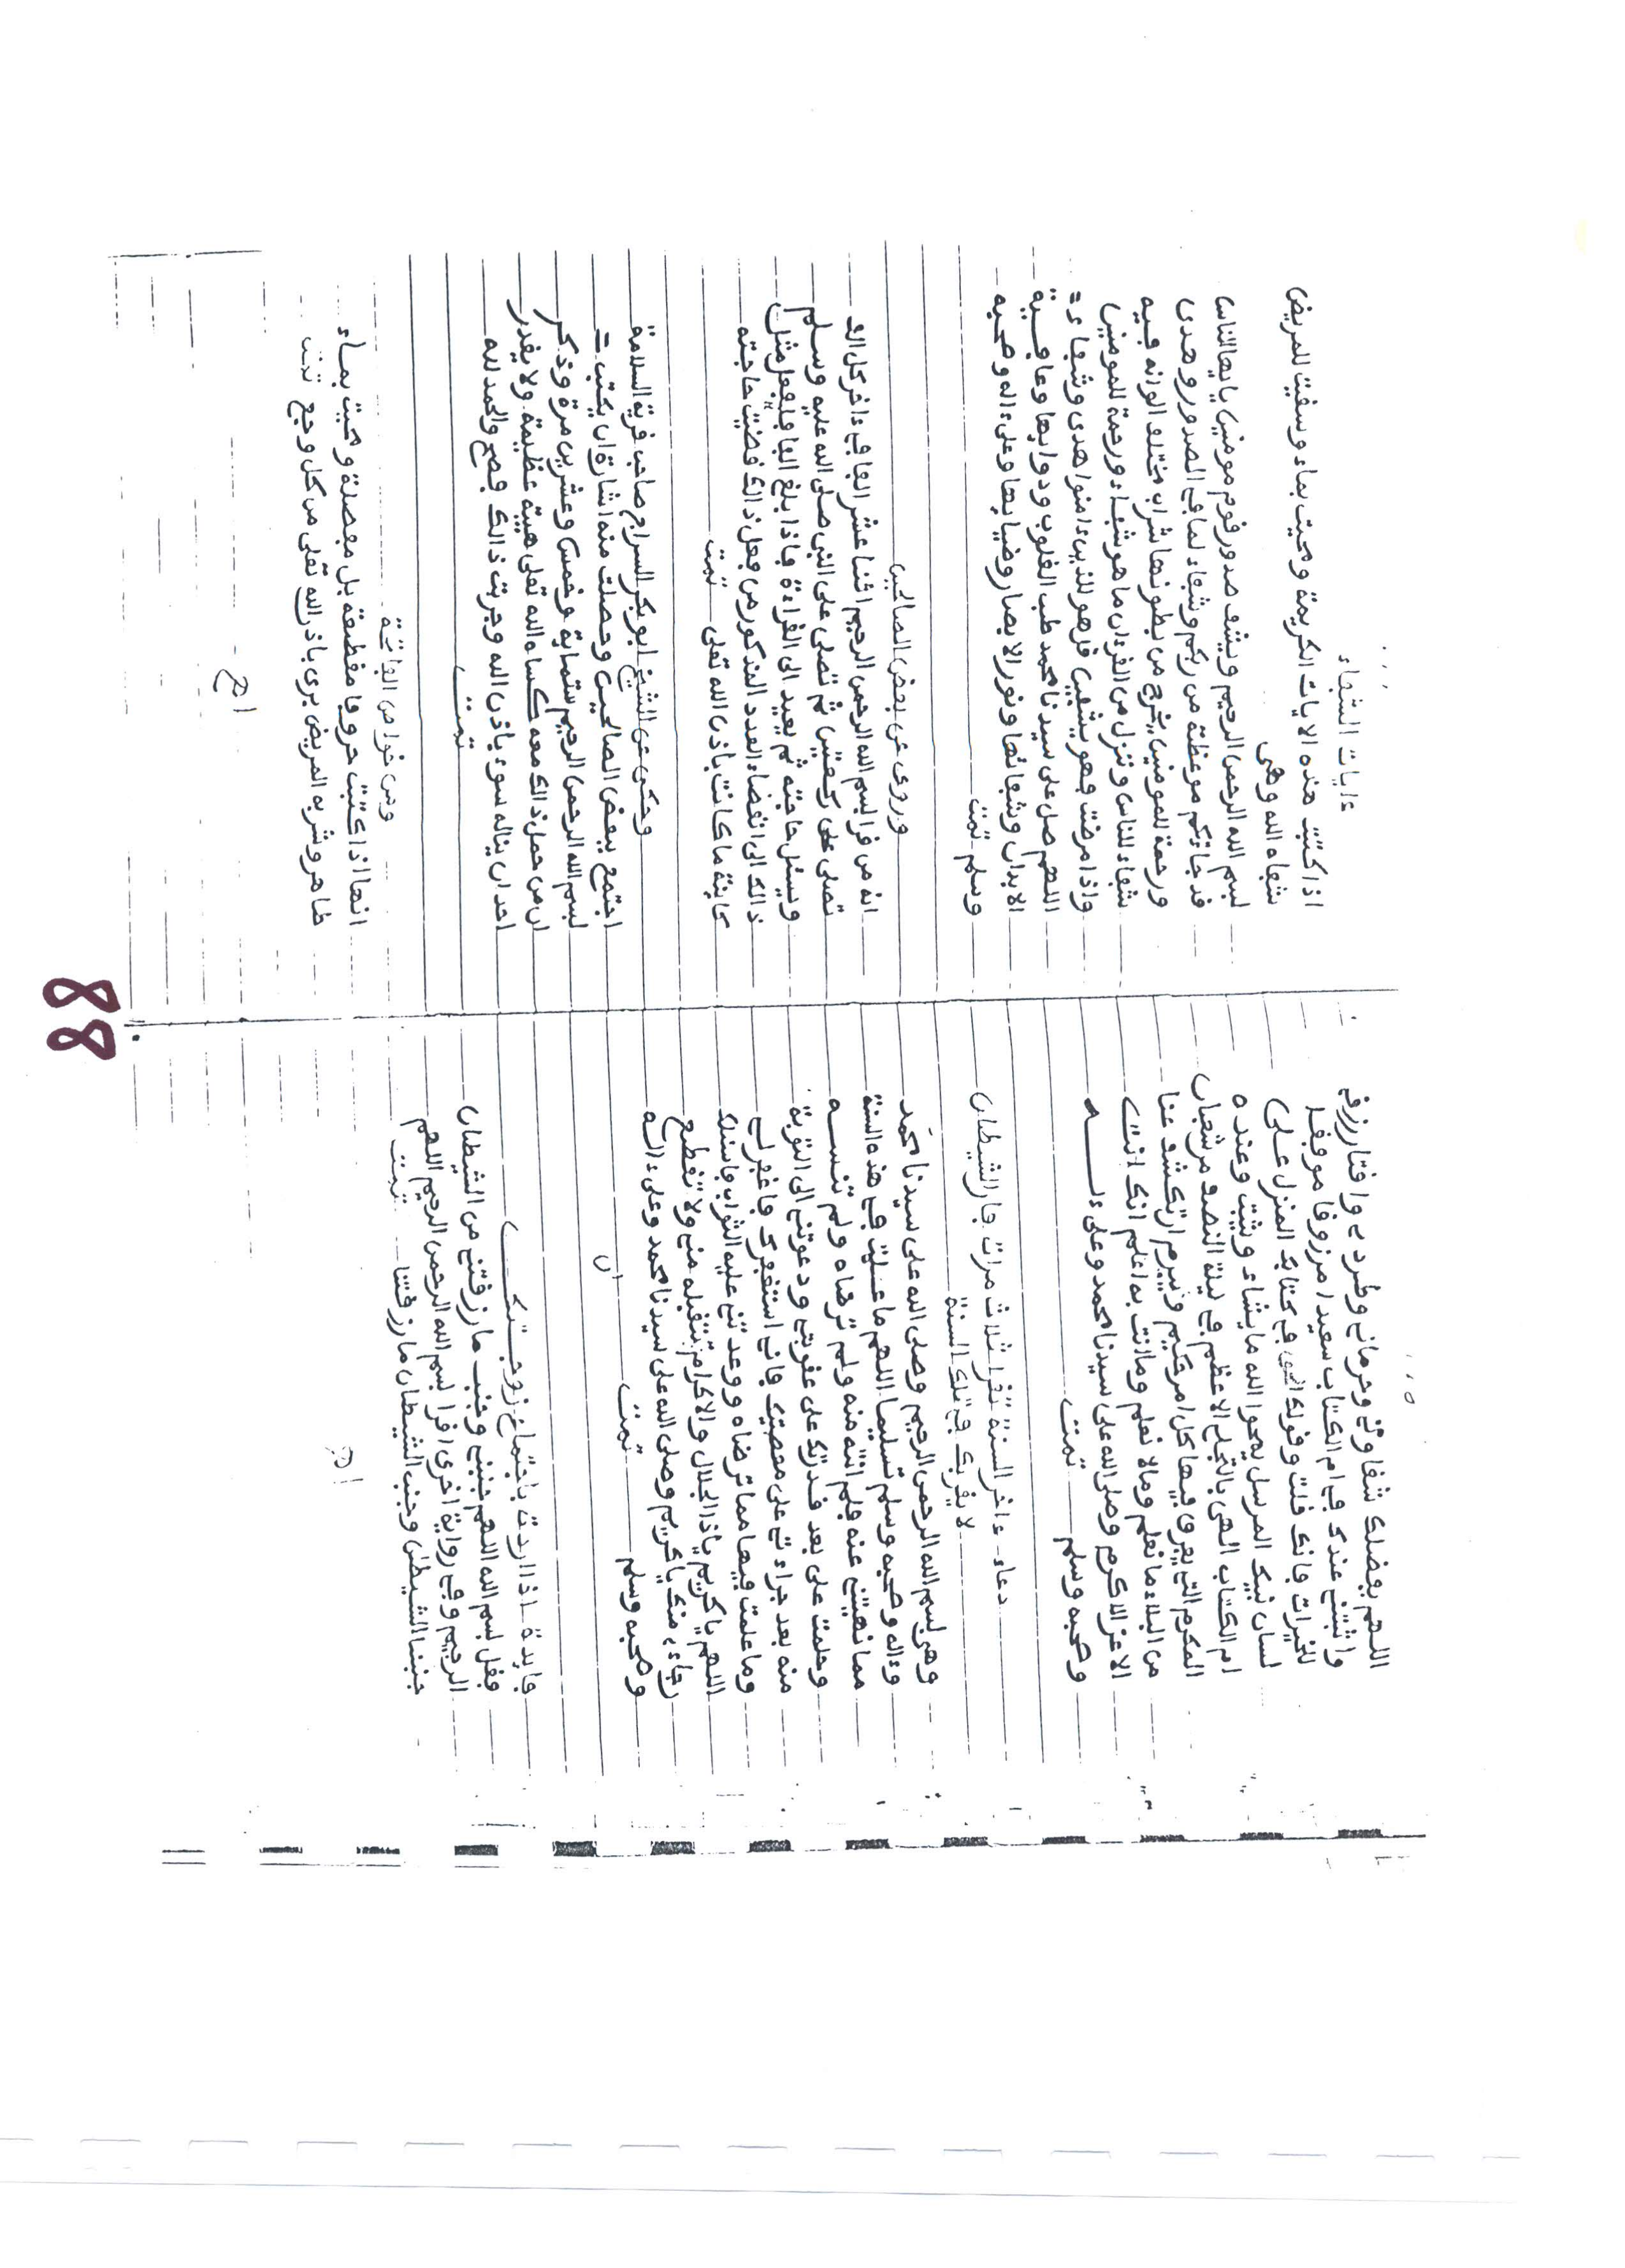 اللهم بفضلك شقاوتي وحرماني وطردي واقتار رزقي
واثبتني عندك في ام الكتاب سعيدا مرزوقا موفقا
للخيرات فانك قلت وقولك الحق في كتابك المنزل على
لسان نبيك المرسل يمحوا الله ما يشاء ويثبت وعنده
ام الكتاب الهي بالتجلي الاعظم في ليلة النصف من شعبان
المكرم التي يفرق فيها كل امر حكيم ويبرم ان تكشف عنا
من البلاء ما نعلم وما لا نعلم وما انت به اعلم انك انت
الاعز الاكرم وصلى الله على سيدنا محمد وعلى ءالـــه
وصحبه وسلم تمت
دعاء ءاخر السنة تقرا ثلاث مرات فان الشيطان
لا يقربك في تلك السنة
وهي بسم الله الرحمن الرحيم وصلى الله على سيدنا محمد
وءاله وصحبه وسلم تسليما اللهم ما عملت في هذه السنة
مما نهيتني عنه فلم اتب منه ولم ترضاه ولم تنســه
وحلمت علي بعد قدرتك على عقوبتي ودعوتني الى التوبة
منه بعد جراءتي على معصيتك فاني استغفرك فاغفر لي
وما عملت فيها مما ترضاه ووعدتني عليه الثواب فاسئلك
اللهم يا كريم يا ذا الجلال والاكرام تتقبله مني ولا تقطع
رجاءي منك يا كريم وصلى الله على سيدنا محمد وعلى ءاله
وصحبه وسلم تمت
فايدة اذا اردت باجتماع زوجـــتك
فقل بسم الله اللهم جنبني وجنب ما رزقتني من الشيطان
الرجيم وفي رواية اخرى اقرا بسم الله الرحمن الرحيم اللهم
جنبنا الشيطن وجنب الشيطان ما رزقتنا تمت
اهـ
ءايات الشفاء
اذا كتبت هذه الايات الكريمة ومحيت بماء وسقيت للمريض
شفاه الله وهي
بسم الله الرحمن الرحيم ويشف صدور قوم مومنين يايها الناس
قد جاءتكم موعظة من ربكم وشفاء لما في الصدور وهدى
ورحمة للمومنين يخرج من بطونها شراب مختلف الوانه فيه
شفاء للناس وننزل من القرءان ما هو شفاء ورحمة للمومنين
واذا مرضت فهو يشفين قل هو للذين ءامنوا هدى وشفاء
اللهم صل على سيدنا محمد طب القلوب ودوايها وعافـية
الابدان وشفائها ونور الابصار وضيايها وعلى ءاله وصحبه
وسلم تمت
وروي عن بعض الصالحين
انه من قرا بسم الله الرحمن الرحيم اثنا عشر الفا في ءاخر كل الف
تصلى على ركعتين ثم تصلى على النبي صلى الله عليه وسلم
ويسئل حاجته ثم يعيد الى القراءة فاذا بلغ الفا فليفعل مثل
ذالك الى انقضاء العدد المذكور من فعل ذالك قضيت حاجته
كاينة ما كانت باذن الله تعلى تمت
وحكي عن الشيخ ابو بكر السراج صاحب قرية السلامة
اجتمع ببعض الصالحين وحصلت منه اشارة ان يكتب
بسم الله الرحمن الرحيم ستماية وخمس وعشرين مرة وذكر
ان من حمل ذالك معه كساه الله تعلى هيبة عظيمة ولا يقدر
احد ان يناله سوء باذن الله وجربت ذالك فصح والحمد لله
تمت
ومن خواص الفاتحة
انها اذا كتبت حروفا مقطعة بل مفصلة ومحيت بمــاء
طاهر وشربه المريض برى باذن الله تعلى من كل وجع تمت
اهـ
88